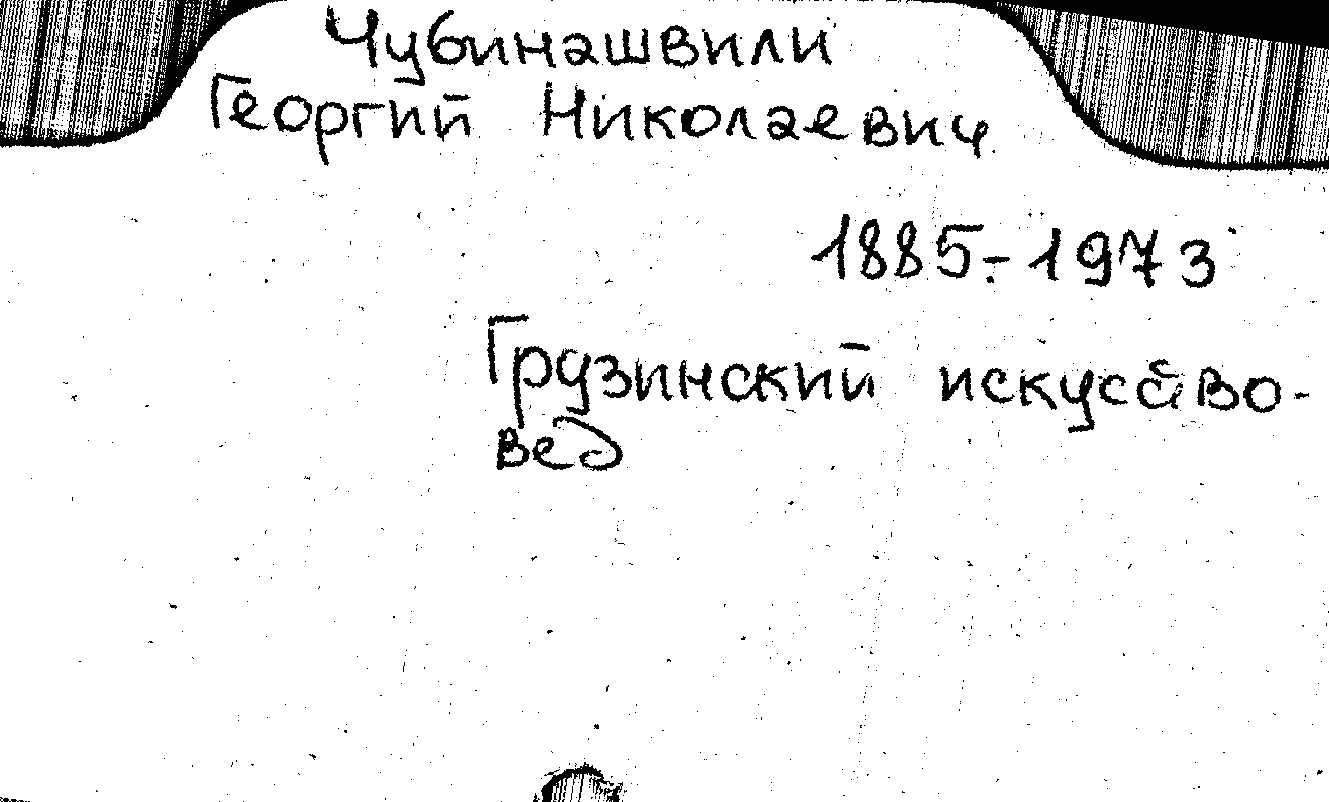 Чубинашвили
Георгий Николаевич
1885-1973
Грузинский искусство-
вед